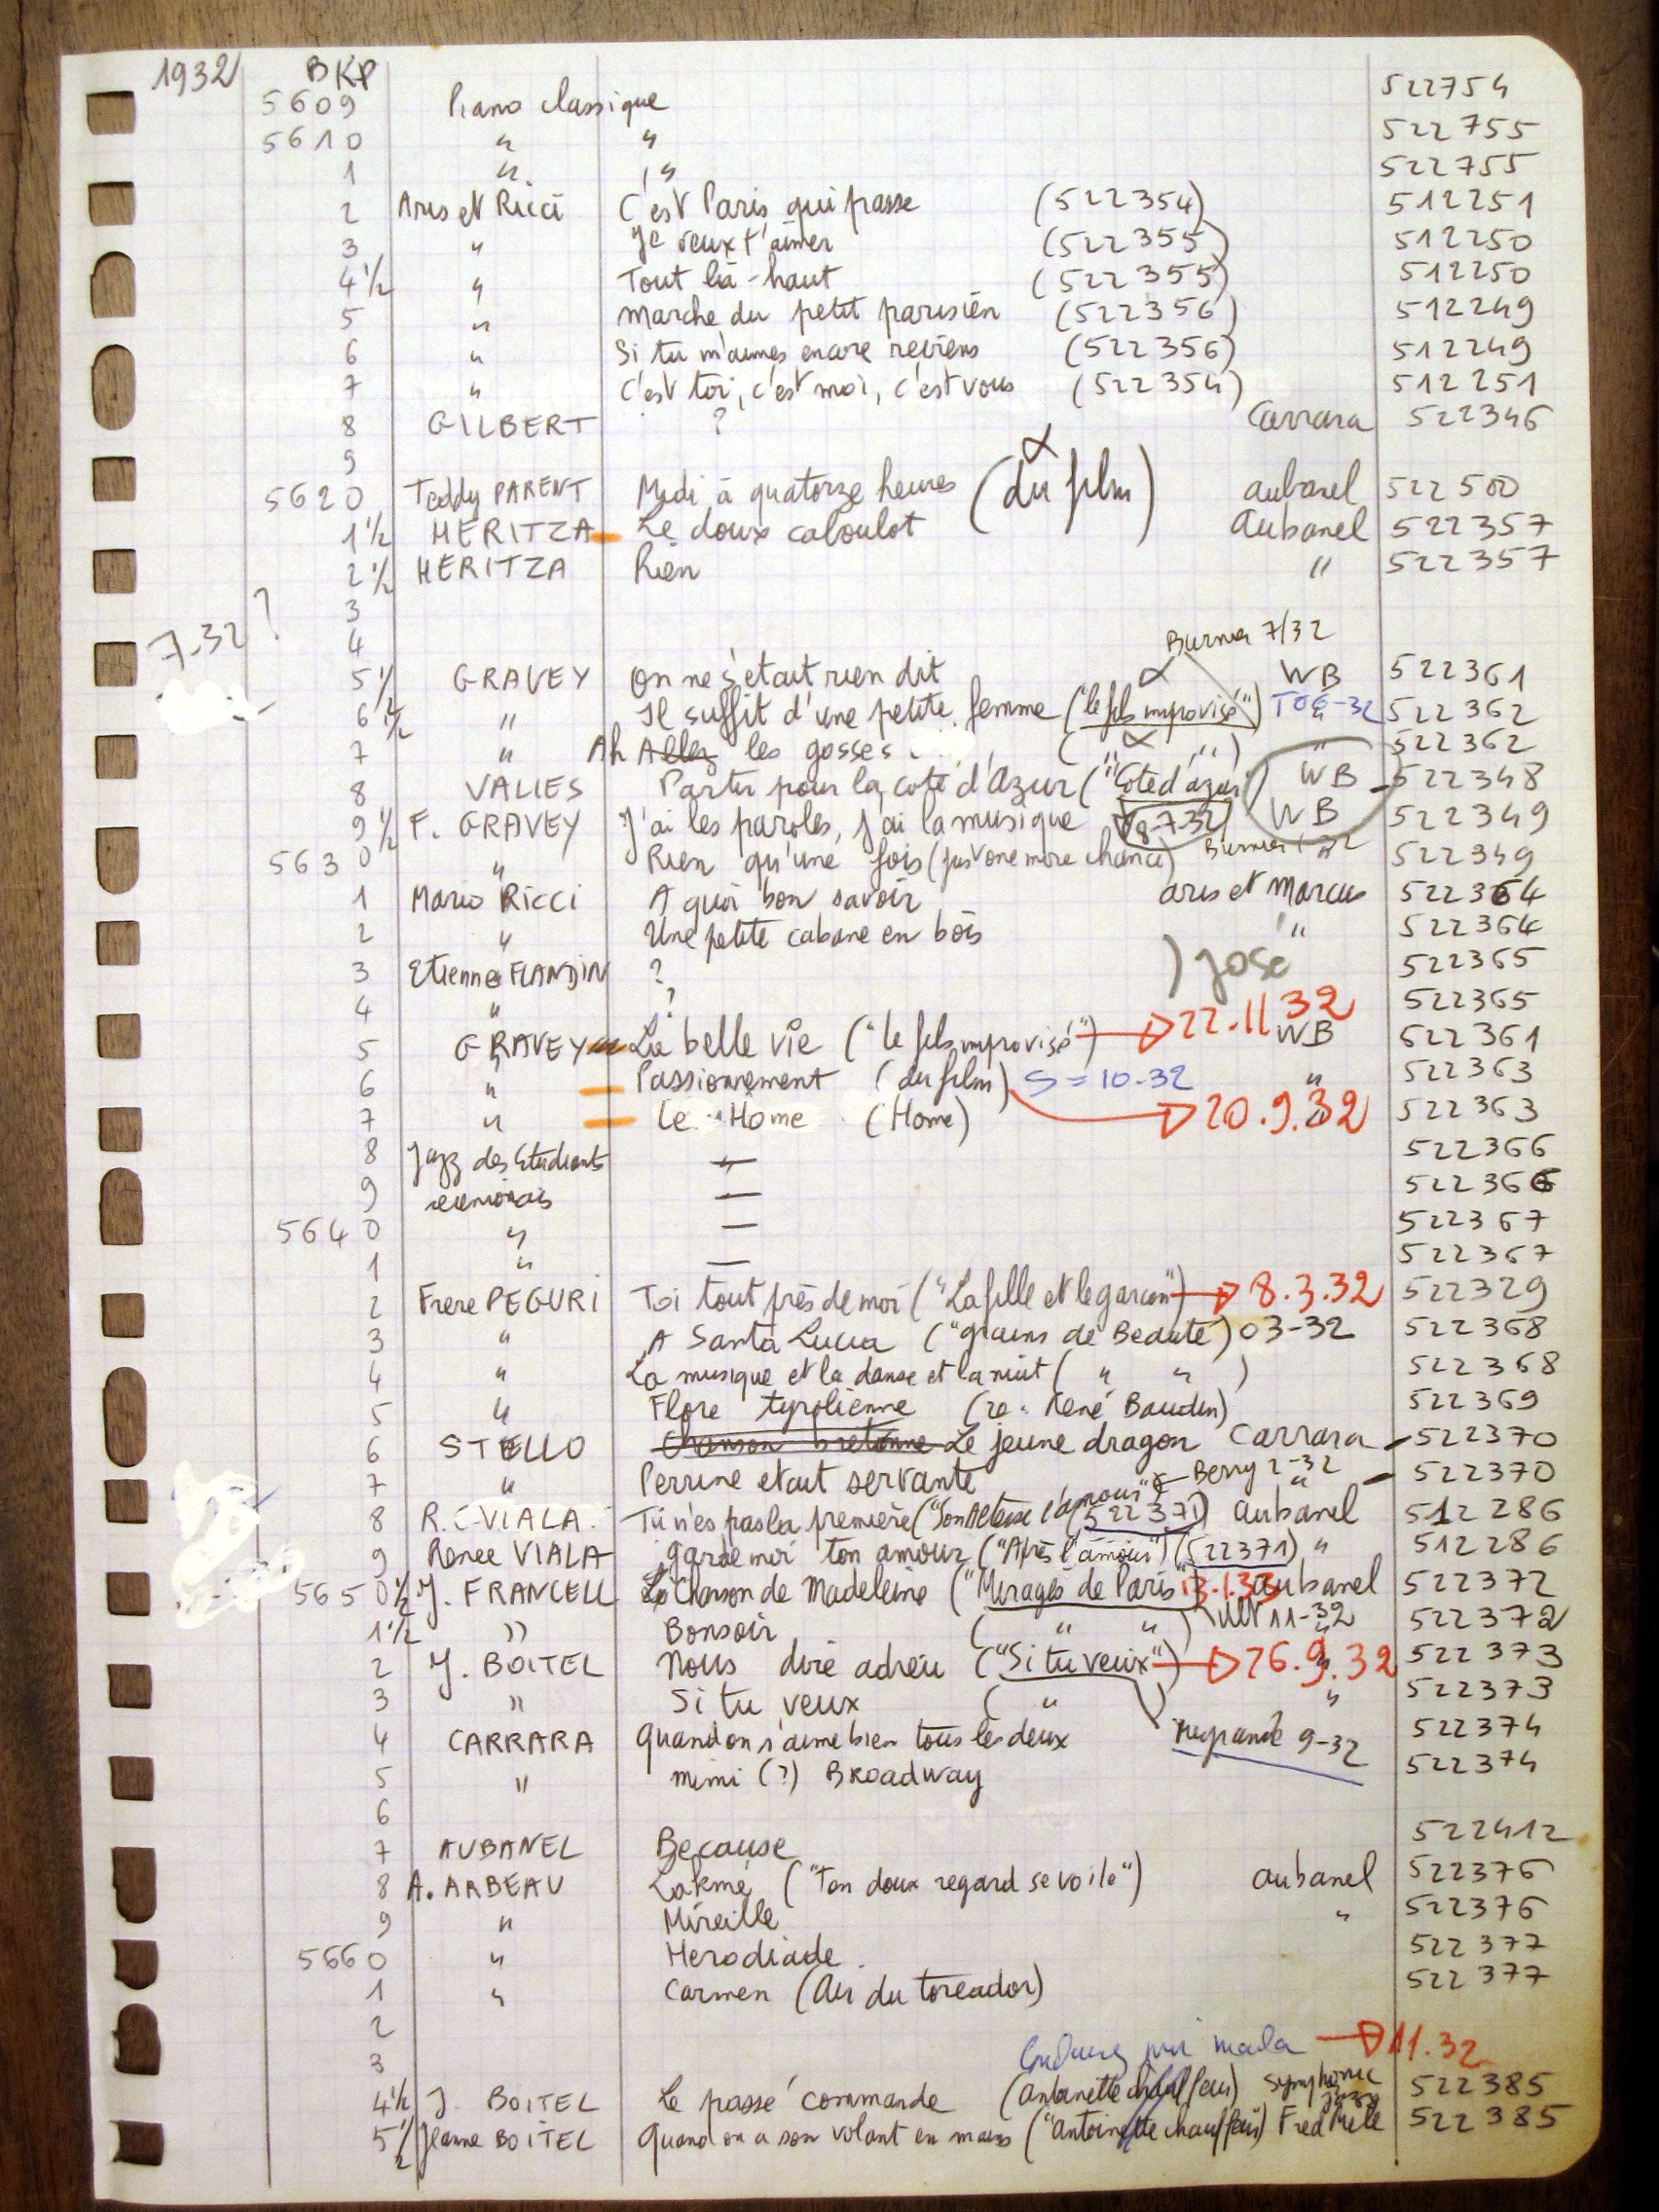 1932 BKP
5609 Piano classique 522754
5610 " " 522755
1 " " 522755
2 Aris et Ricci C'est Paris qui passe (522354) 512251
3 " Je veux t'aimer (522355) 512250
4 1/2 " Tout là-haut (522355) 512250
5 " Marche du petit parisien (522356) 512249
6 " Si tu m'aimes encore reviens (522356) 512249
7 " C'est toi, c'est moi, c'est vous (522354) 512251
8 GILBERT ? Carrara 522346
9
5620 Teddy PARENT Midi à quatorze heures (du film) aubanel 522500
1 1/2 HERITZA Le doux caboulot Aubanel 522357
2 1/2 HERITZA Rien " 522357
3
7-32 ? 4
Burnier 7/32
5 1/2 GRAVEY On ne s'était rien dit α WB 522361
6 1/2 " Il suffit d'une petite femme ("le fils improvisé") 522362
7 " Ah Allez les gosses ( α " ) " 522362
8 VALIES Partir pour la cote d'Azur ("Côte d'azur") WB 522348
9 1/2 F. GRAVEY J'ai les paroles, j'ai la musique 8-7-32 WB 522349
5630 " Rien qu'une fois (just one more chance) " 522349
1 Mario Ricci A quoi bon savoir aris et Marcus 522364
2 " Une petite cabane en bois " 522364
3 Etienne FLANDIN ? ) José 522365
4 " ? 522365
5 GRAVEY La belle vie ("le fils improvisé") 22.11 32 WB 522361
6 " Passionnement (du film) S = 10-32 " 522363
7 " Le Home (Home) 20.9.32 522363
8 Jazz des Etudiants — 522366
9 — 522366
5640 " — 522367
1 " — 522367
2 Frere PEGURI Toi tout près de moi ("La fille et le garçon") 8.3.32 522329
3 " A Santa Lucia ("grains de Beauté") 03-32 522368
4 " La musique et la danse et la nuit ( " " ) 522368
5 " Flore tyrolienne (re. René Baudin) 522369
6 STELLO Chanson bretonne Le jeune dragon Carrara 522370
7 " Perrine etait servante " 522370
Berry 2-32
8 R. VIALA Tu n'es pas la première ("Son Altesse l'amour") (522371) aubanel 512286
9 Renee VIALA garde moi ton amour ("Après l'amour") (522371) " 512286
5650 1/2 J. FRANCELL La Chanson de Madeleine ("Mirages de Paris") 13.1.33 aubanel 522372
1 1/2 " Bonsoir ( " " ) 11-32 522372
2 J. BOITEL Nous dire adieu ("Si tu veux") 26.9.32 522373
3 " Si tu veux ( " " 522373
4 CARRARA Quand on s'aime bien tous les deux 9-32 522374
5 " mimi (?) Broadway 522374
6
7 AUBANEL Because 522412
8 A. ARBEAU Lakmé ("Ton doux regard se voile") aubanel 522376
9 " Mireille " 522376
5660 " Herodiade. 522377
1 " Carmen (Air du toreador) 522377
2
3 11.32
4 1/2 J. BOITEL Le passé commande (antoinette chauffeur) Symphonic jazz 522385
5 1/2 Jeanne BOITEL Quand on a son volant en mains ("Antoinette chauffeur") Fred Mele 522385